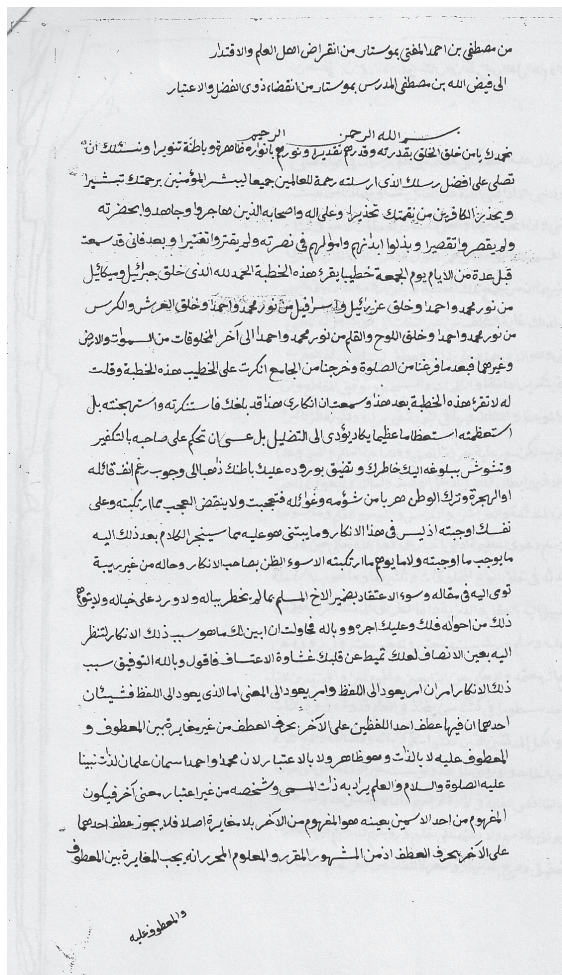 من مصطفى بن احمد المفتى بموستار من انقراض اهل العلم والاقتدار
الى فيض الله بن مصطفى المدرس بموستار من انقضاء ذوى الفضل والاعتبار
بسم الله الرحمن الرحيم
نحمدك يا من خلق الخلق بقدرته وقدرهم تقديرا ونورهم بانواره ظاهرة وباطنة تنويرا ونسئلك ان
تصلى على افضل رسلك الذى ارسلته رحمة للعالمين جميعا ليبشر المؤمنين برحمتك تبشيرا
ويحذر الكافرين من نقمتك تحذيرا وعلى اله واصحابه الذين هاجروا وجاهدوا بحضرته
ولم يقصروا تقصيرا وبذلوا انفسهم واموالهم فى نصرته ولم يقتروا تقتيرا وبعد فانى قد سمعت
قبل عدة من الايام يوم الجمعة خطيبا يقرء هذه الخطبة الحمد لله الذى خلق جبرائيل وميكائيل
من نور محمد واحمد وخلق عزرائيل واسرافيل من نور محمد واحمد وخلق العرش والكرسى
من نور محمد واحمد وخلق اللوح والقلم من نور محمد واحمد الى آخر المخلوقات من السموات والارض
وغيرهما فبعد ما فرغنا من الصلوة وخرجنا من الجامع انكرت على الخطيب هذه الخطبة وقلت
له لا تقرء هذه الخطبة بعد هذا وسمعت ان انكارى هذا قد بلغك فاستنكرته واستهجنته بل
استعظمته استعظاما عظيما يكاد يؤدى الى التضليل بل عسى ان تحكم على صاحبه بالتكفير
وتشوش ببلوغه اليك خاطرك وتضيق بوروده عليك باطنك ذهبا الى وجوب رغم انف قائله
او الهجرة وترك الوطن هربا من شؤمه وغوائله فتعجبت ولا ينقض العجب مما ارتكبته وعلى
نفسك اوجبته اذ ليس فى هذا الانكار وما يبتنى هو عليه مما سينجر الكلام بعد ذلك اليه
ما يوجب ما اوجبته ولا ما يوهم ما ارتكبته الا سوء الظن بصاحب الانكار وحاله من غير ريبة
توى اليه فى مقاله وسوء الاعتقاد بضمير الاخ المسلم بما لم يخطر بباله ولا ورد على خياله ولا يتوهم
ذلك من احواله فلك وعليك اجره ووباله فحاولت ان ابين لك ما هو سبب ذلك الانكار لتنظر
اليه بعين الانصاف لعلك تميط عن قلبك غشاوة الاعتساف فاقول وبالله التوفيق سبب
ذلك الانكار امران امر يعود الى اللفظ وامر يعود الى المعنى اما الذى يعود الى اللفظ فشيئان
احدهما ان فيها عطف احد اللفظين على الآخر بحرف العطف من غير مغايرة بين المعطوف و
المعطوف عليه لا بالذات وهو ظاهر ولا بالاعتبار لان محمدا واحمدا اسمان علمان لذات نبينا
عليه الصلوة والسلام والعلم يراد به ذات المسمى وشخصه من غير اعتبار معنى آخر فيكون
المفهوم من احد الاسمين بعينه هو المفهوم من الآخر بلا مغايرة اصلا فلا يجوز عطف احدهما
على الآخر بحرف العطف اذ من المشهور المقرر والمعلوم المحرر انه يجب المغايرة بين المعطوف
والمعطوف عليه